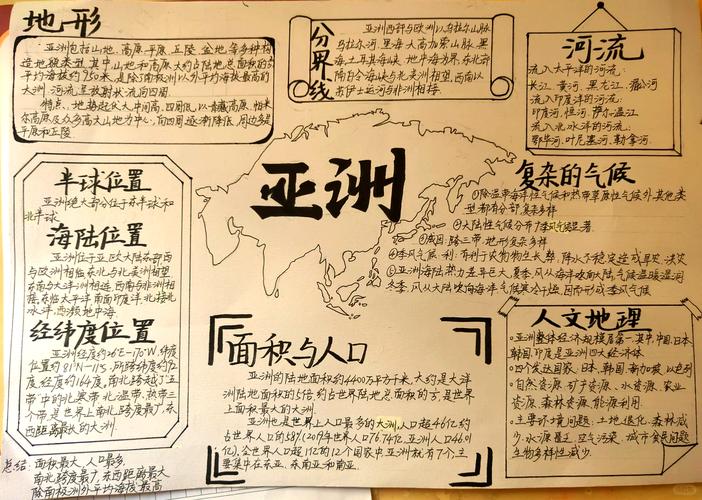 地形
亚洲包括山地、高原、平原、丘陵、盆地等多种构
造地貌类型，其中，山地和高原大约占陆地总面积的
平均海拔约950米，是除南极洲以外平均海拔最高的
大洲，河流呈放射状流向四周。
特点：地势起伏大中间高，四周低，以青藏高原、帕米
尔高原及众多高大山地为中心，向四周逐渐降低，周边多是
平原和丘陵
分界线
亚洲西针与欧洲以乌拉尔山脉
乌拉尔河、里海、大高加索山脉、黑
海、土耳其海峡、地中海为界，东北方
隔白令海峡与北美洲相望，西南以
苏伊士运河与非洲相接。
河流
流入太平洋的河流：
长江、黄河、黑龙江、湄公河
流入印度洋的河流：
印度河、恒河、萨尔温江
流入北冰洋的河流：
鄂毕河、叶尼塞河、勒拿河
亚洲
半球位置
亚洲绝大部分位于东半球和
北半球
海陆位置
亚洲位于亚欧大陆东部，西
与欧洲相临，东北与北美洲相望
东南与大洋洲相近，西南与非洲相
接，东临太平洋，南面印度洋，北接北
冰洋，西频地中海。
经纬度位置
亚洲经度约26°E-170°W，纬度
位置约81°N-11°S，所跨纬度约92
度，经度约164度，南北跨越了五
带中的北寒带、北温带、热带三
个带，是世界上南北跨度最广，东
西距离最长的大洲。
复杂的气候
①除温带海洋性气候和热带草原性气候外，其他类
型都有分部，复杂多样
②大陆性气候分布广，季风气候显著。
③成因：跨三带，地形复杂多样
④季风气候：利：有利于农作物生长，弊：降水不稳定造成旱灾、洪灾
⑤亚洲海陆热力差异巨大，夏季，风从海洋吹向大陆，气候温暖湿润
冬季，风从大陆吹向海洋，气候寒冷干燥，因而形成季风气候
面积与人口
亚洲的陆地面积约4400万平方千米，大约是大洋
洲陆地面积的5倍，约占世界陆地总面积的，是世界
上面积最大的大洲。
亚洲也是世界上人口最多的大洲，人口超46亿约
占世界人口的
全世界人口超1亿的12个国家中，亚洲就有7个，主
要集中在东亚、东南亚和南亚。
人文地理
亚洲整体经济规模居第一，其中，中国、日本
韩国、印度是亚洲四大经济体
四个发达国家：日本、韩国、新加坡、以色列
自然资源：矿产资源、水资源、农业
资源、森林资源、能源利用
主要环境问题：土地退化、森林减
少、水源匮乏、空气污染、城市贫民问题
生物多样性减少。
总结：面积最大，人口最多，
南北跨度最广，东西距离最大
除南极洲外平均海拔最高